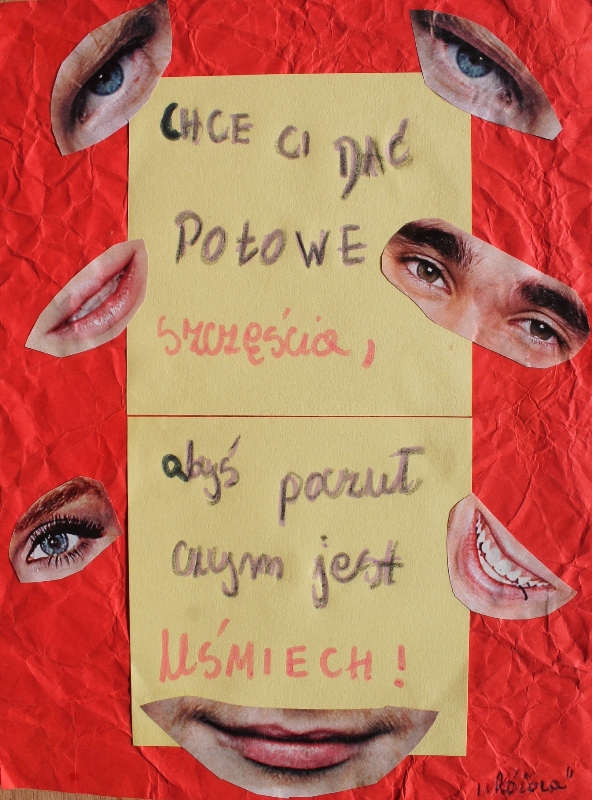 CHCE CI DAĆ
POŁOWE
szczęścia,
abyś poczuł
czym jest
UŚMIECH!